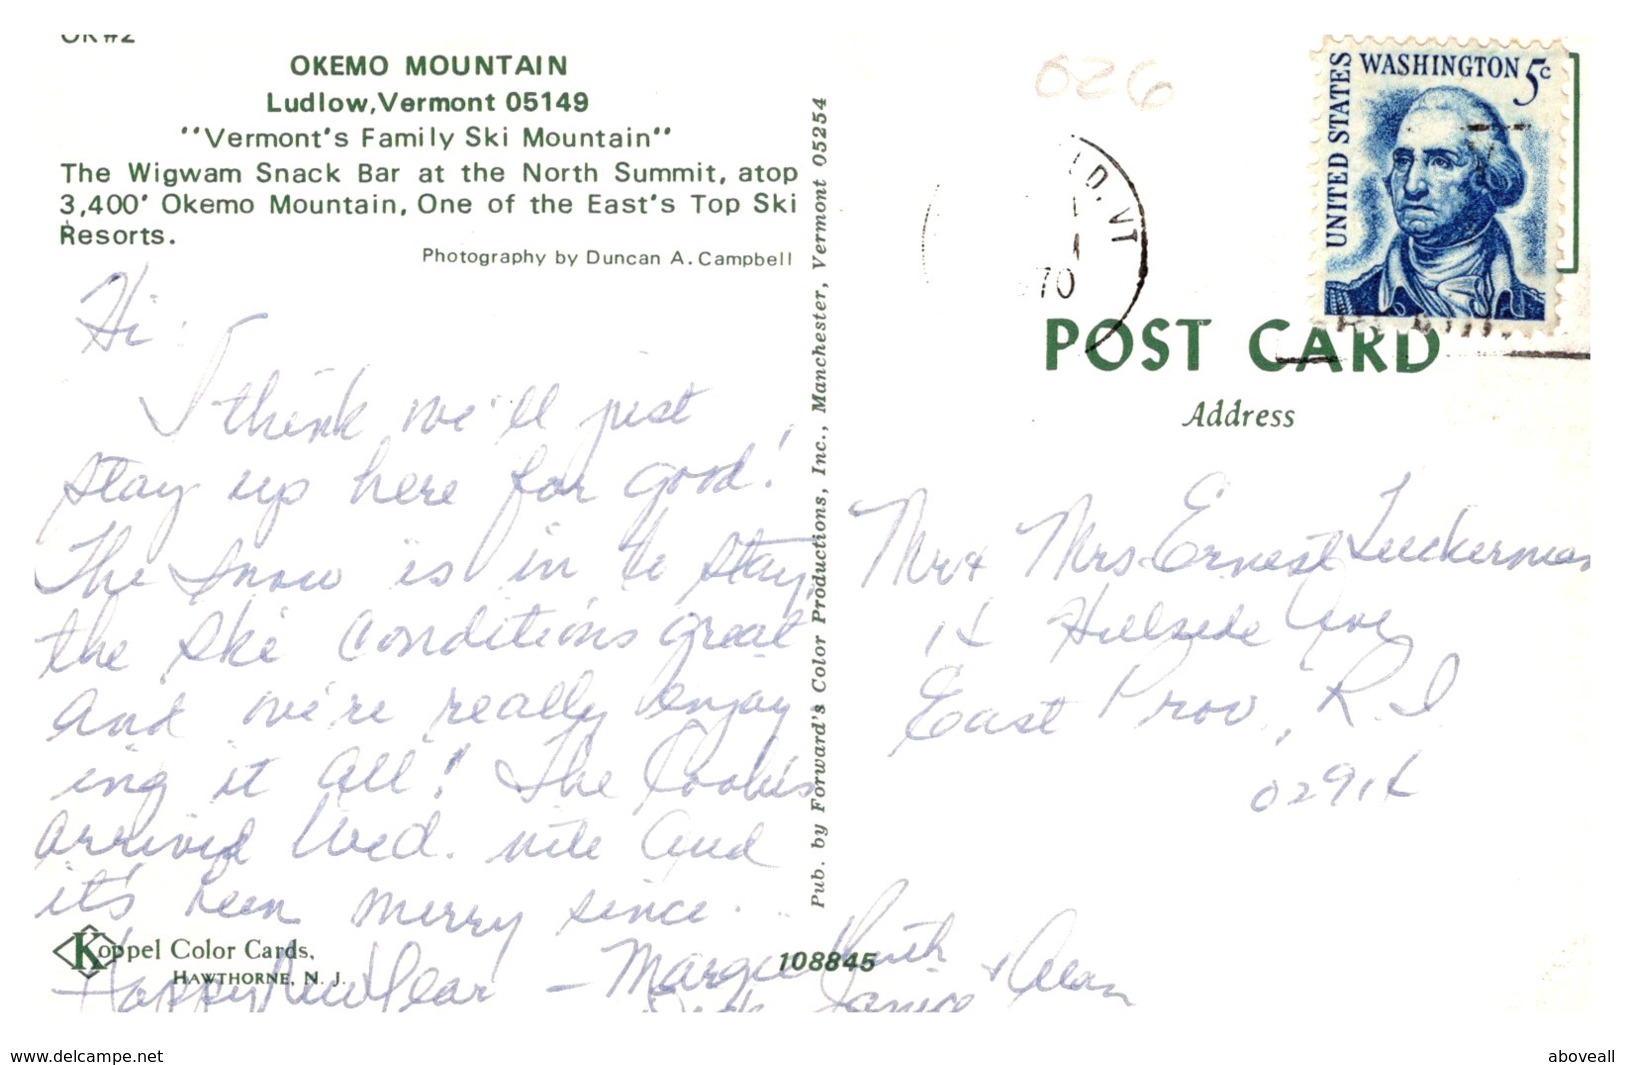 OK#2
OKEMO MOUNTAIN
Ludlow, Vermont 05149
"Vermont's Family Ski Mountain"
The Wigwam Snack Bar at the North Summit, atop
3,400' Okemo Mountain, One of the East's Top Ski
Resorts.
Photography by Duncan A. Campbell
Hi:
I think we'll just
stay up here for good!
The snow is in to stay,
the ski conditions great
and we're really enjoy
ing it all! The Cooks
arrived Wed. nite and
it's been merry since.
Happy New Year - Margie Ruth & Alan
Janice
Koppel Color Cards,
HAWTHORNE, N. J.
108845
Pub. by Forward's Color Productions, Inc., Manchester, Vermont 05254
026
D. VT
1
70
UNITED STATES
WASHINGTON 5c
POST CARD
Address
Mr & Mrs Ernest Tuckerman
14 Hillside Ave
East Prov., R.I
02914
www.delcampe.net
aboveall